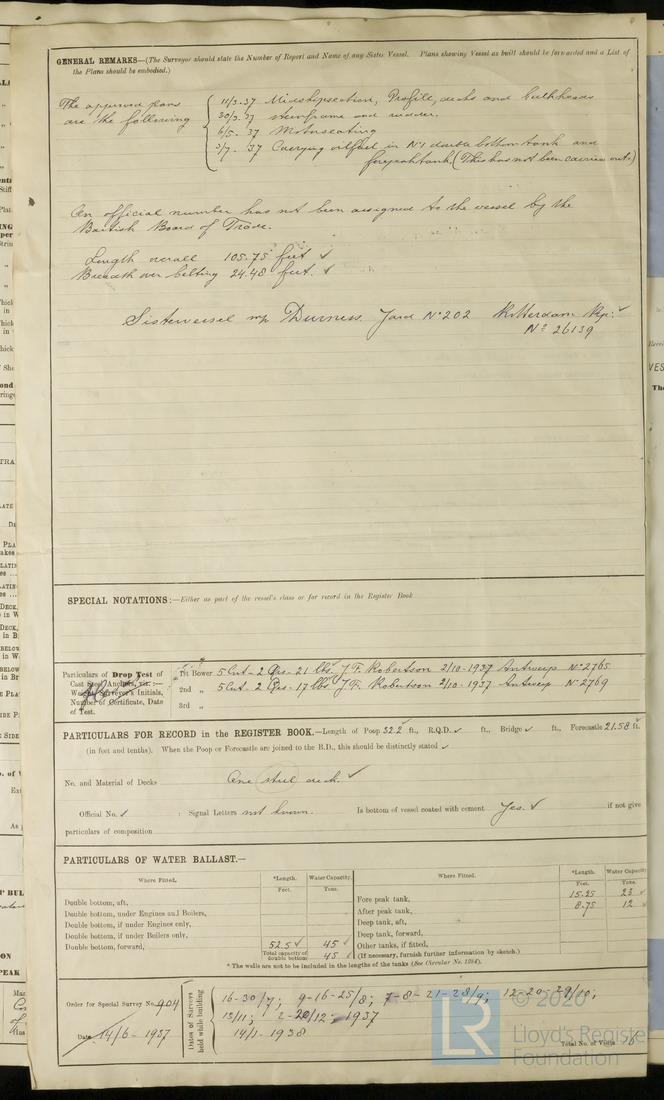 GENERAL REMARKS—(The Surveyor should state the Number of Report and Name of any Sister Vessel. Plans showing Vessel as built should be forwarded and a List of
the Plans should be embodied.)
The approved plans
are the following
11/3.37 Midshipsection, Profile, decks and bulkheads
30/3.37 sternframe and rudder.
6/5.37 Motorseating
5/7.37 Carrying oilfuel in No 1 double bottom tank and
forepeaktank. (This has not been carried out.)
An official number has not been assigned to the vessel by the
British Board of Trade.
Length overall 105.75 feet ✓
Breadth over belting 24.48 feet. ✓
Sistervessel m/v Durness Yard No 202 Rotterdam Rep: ✓
No 26139
SPECIAL NOTATIONS:—Either as part of the vessel's class or for record in the Register Book
Particulars of Drop Test of
Cast Steel Anchors, viz.:—
Weight, Surveyor's Initials,
Number of Certificate, Date
of Test.
1st Bower 5 Cwt - 2 Qrs - 21 lbs. J.F. Robertson 2/10-1937 Antwerp No 2765
2nd „ 5 Cwt. 2 Qrs - 17 lbs J.F. Robertson 2/10-1937 Antwerp No 2769
3rd „
PARTICULARS FOR RECORD in the REGISTER BOOK.—Length of Poop 32.2 ft., R.Q.D. ✓ ft., Bridge ✓ ft., Forecastle 21.58 ft.
(in feet and tenths). When the Poop or Forecastle are joined to the B.D., this should be distinctly stated ✓
No. and Material of Decks One steel deck. ✓
Official No. ; Signal Letters not known. Is bottom of vessel coated with cement Yes. ✓ if not give
particulars of composition
PARTICULARS OF WATER BALLAST.—
Where Fitted. *Length. Water Capacity. Where Fitted. *Length. Water Capacity
Feet. Tons. Feet. Tons.
Double bottom, aft, Fore peak tank, 15.25 23 ✓
Double bottom, under Engines and Boilers, After peak tank, 8.75 12 ✓
Double bottom, if under Engines only, Deep tank, aft,
Double bottom, if under Boilers only, Deep tank, forward,
Double bottom, forward, 52.5 ✓ 45 ✓ Other tanks, if fitted,
Total capacity of double bottom 45 ✓ (If necessary, furnish further information by sketch.)
* The wells are not to be included in the lengths of the tanks (See Circular No. 1284).
Order for Special Survey No. 904
Date 14/6 - 1937
Dates of Surveys
held while building
16-30/7; 9-16-25/8; 7-8-21-28/9; 12-20-29/10;
15/11; 2-20/12 - 1937
14/1 - 1938
Total No. of Visits 16
LR
© 2020
Lloyd's Register
Foundation